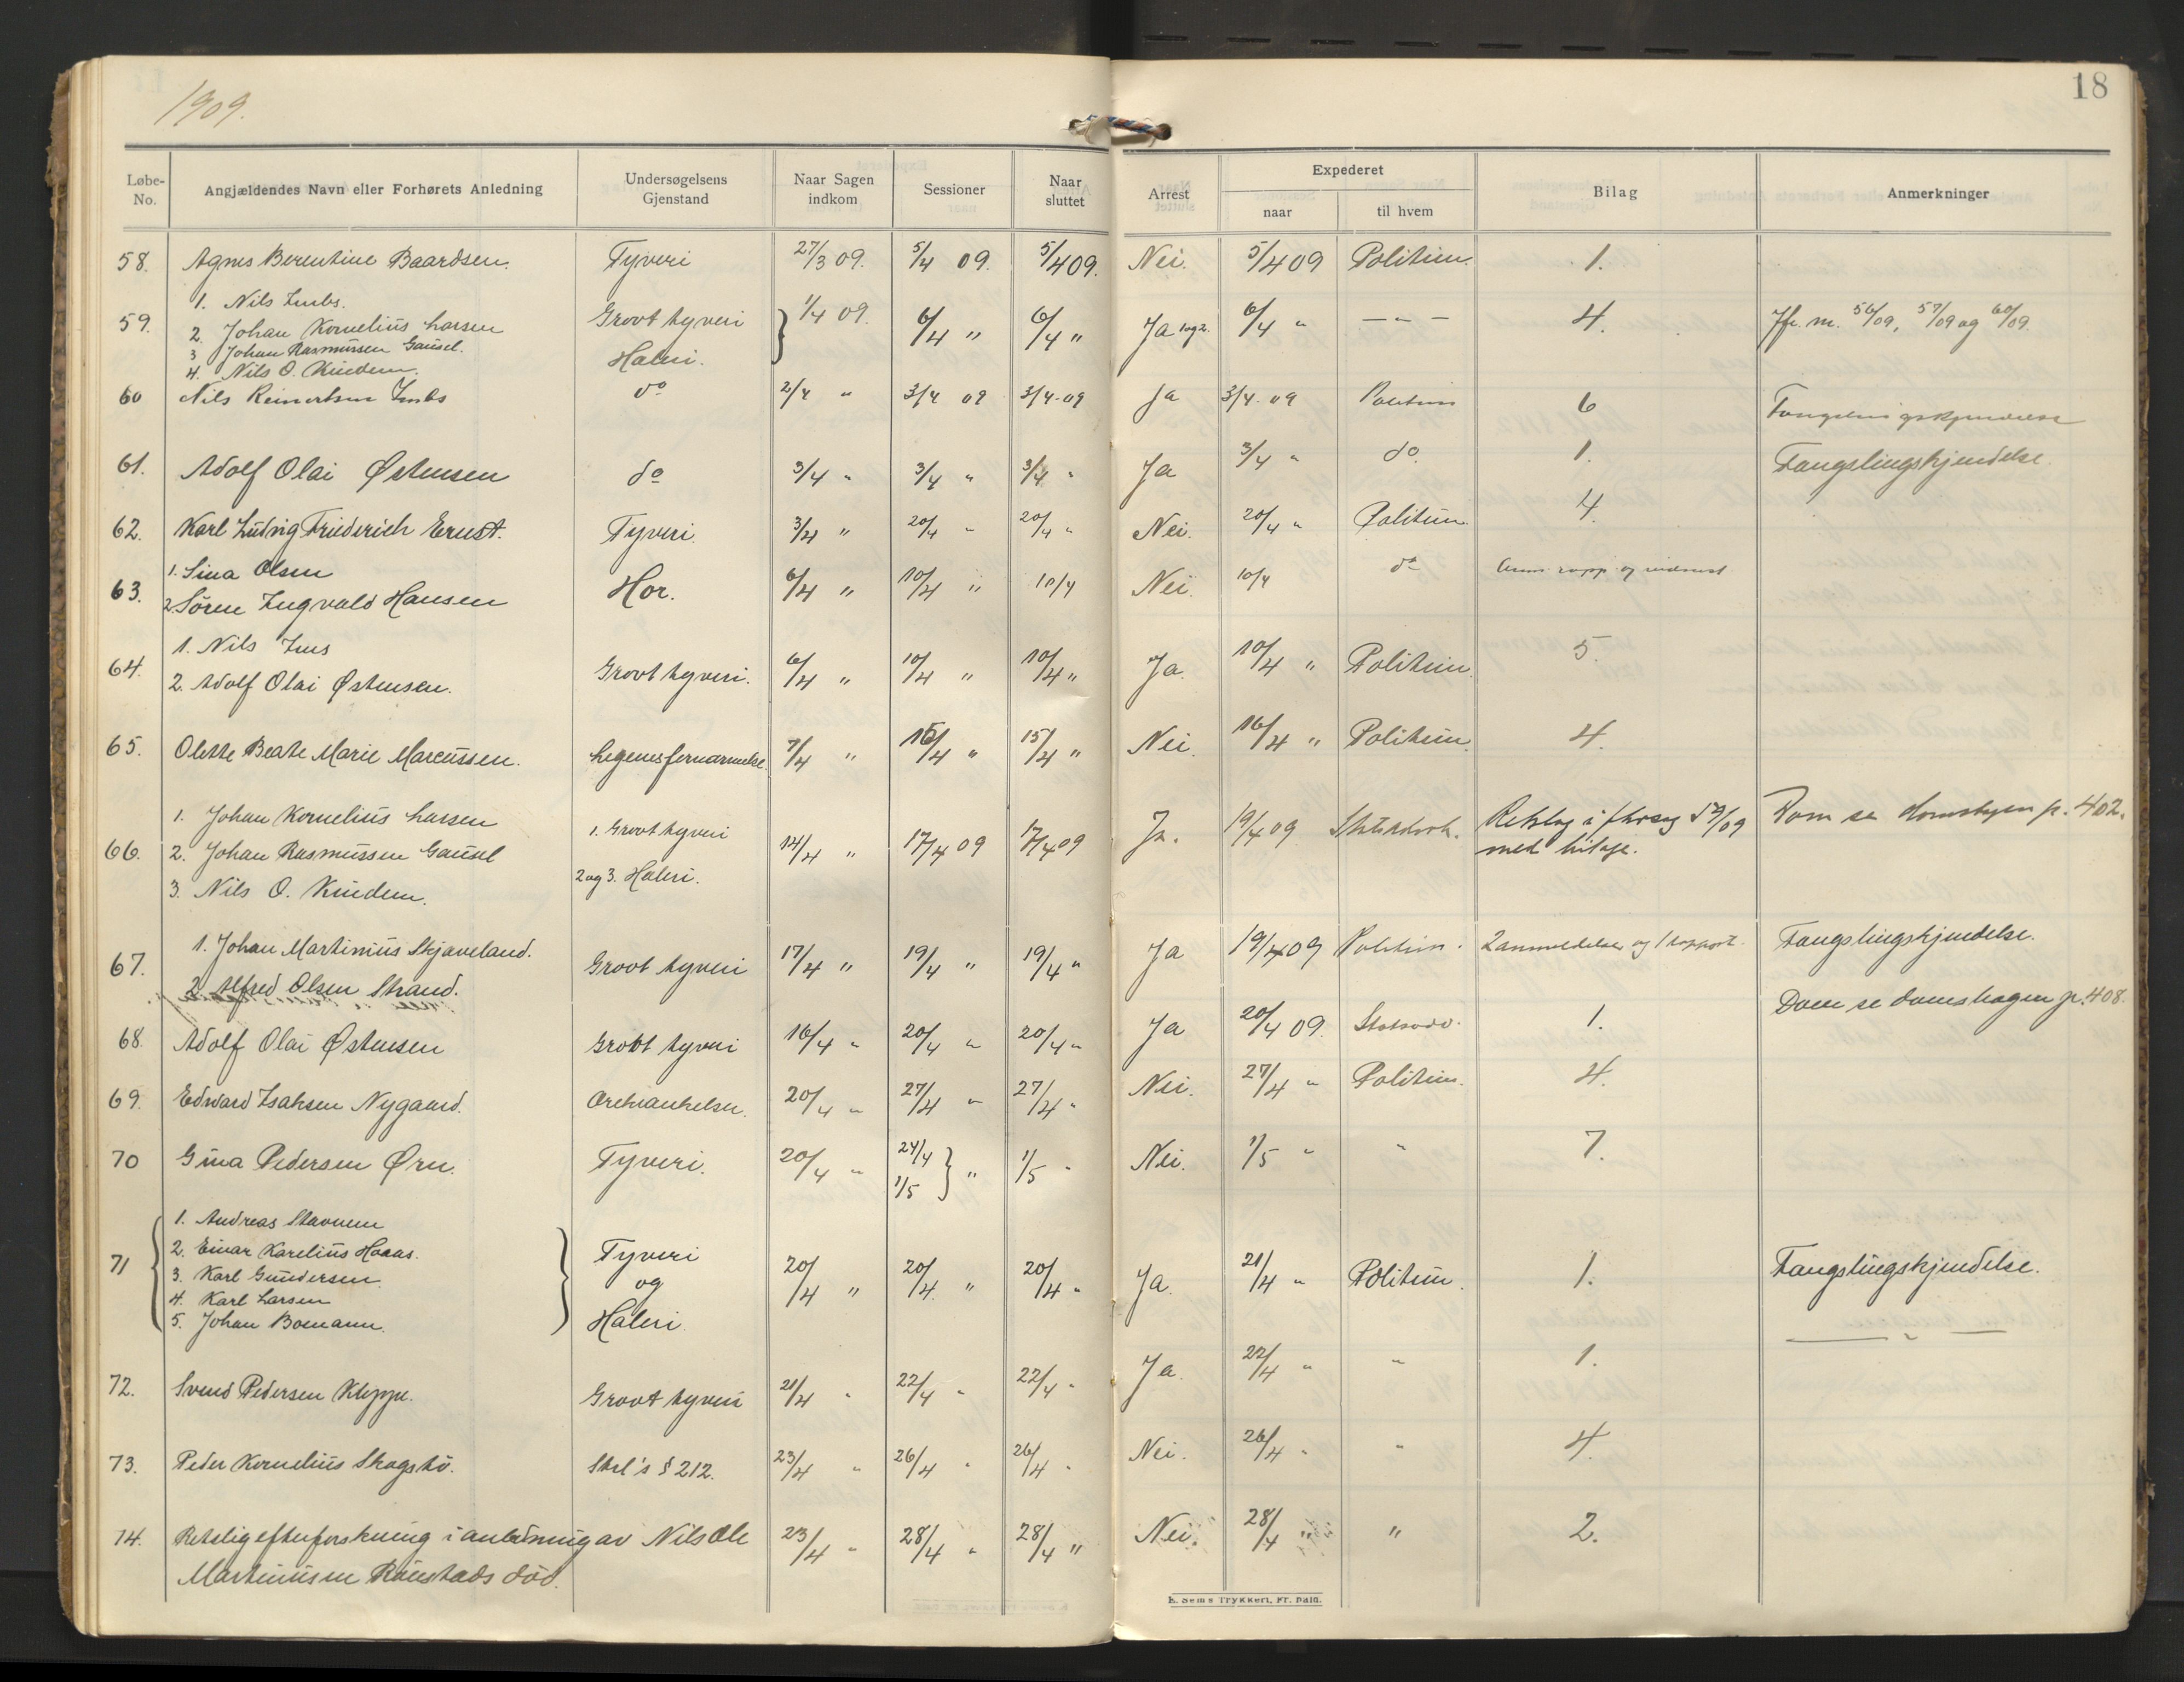 1909.
18
Løbe-No. Angjældendes Navn eller Forhørets Anledning Undersøgelsens Gjenstand Naar Sagen indkom Sessioner Naar sluttet Arrest Expederet naar til hvem Bilag Anmerkninger
58. Agnes Berentine Baardsen. Tyveri 27/3 09. 5/4 09. 5/4 09. Nei. 5/4 09 Politiem. 1.
59. 1. Nils Imbs. Grovt tyveri } 1/4 09. 6/4 " 6/4 " Ja 1 og 2. 6/4 " — " — 4. Jfr. m. 56/09, 57/09 og 60/09.
2. Johan Kornelius Larsen
3 Johan Rasmussen Gausel. Haleri.
4. Nils O. Kindem.
60 Nils Reinertsen Imbs do 2/4 " 3/4 09 3/4-09 Ja 3/4-09 Politiem 6 Fængslingskjendelse
61. Adolf Olai Østensen do 3/4 " 3/4 " 3/4 " Ja 3/4 " do. 1. Fængslingskjendelse.
62. Karl Ludvig Friederich Ernst. Tyveri. 3/4 " 20/4 " 20/4 " Nei. 20/4 " Politiem. 4.
63. 1. Sina Olsen
2. Sören Ingvald Hansen Hor. 6/4 " 10/4 " 10/4 Nei. 10/4 do
64. 1. Nils Ims
2. Adolf Olai Østensen. Grovt tyveri. 6/4 " 10/4 " 10/4 " Ja. 10/4 " Politiem. 5.
65. Olette Beate Marie Marcussen. Legemsfornærmelse. 7/4 " 15/4 " 15/4 " Nei. 16/4 " Politiem. 4.
66. 1. Johan Kornelius Larsen 1. Grovt tyveri 14/4 " 17/4 09 17/4 09 Ja. 19/4 09 med bilage. Dom se domsbogen p. 402.
2. Johan Rasmussen Gausel
3. Nils O. Kindem. 2 og 3. Haleri.
67. 1. Johan Martinius Skjæveland. Grovt tyveri 17/4 " 19/4 " 19/4 " Ja 19/4 09 Politiem. 2 anmeldelser og 1 rapport. Fængslingskjendelse.
2. Alfred Olsen Strand.
68. Adolf Olai Østensen Grovt tyveri 16/4 " 20/4 " 20/4 " Ja 20/4 09. Statsadv. 1. Dom se domsbogen p. 408.
69. Edward Isaksen Nygaard. Ærekrænkelser. 20/4 " 27/4 " 27/4 " Nei. 27/4 " Politiem. 4.
70 Gina Pedersen Ørn. Tyveri. 20/4 " 24/4 1/5 } " 1/5 " Nei. 1/5 " " 7.
71 { 1. Andreas Stavnem
2. Einar Karelius Haaas.
3. Karl Gundersen
4. Karl Larsen
5. Johan Bomann. } Tyveri og Haleri. 20/4 " 20/4 " 20/4 " Ja. 21/4 " Politiem. 1. Fængslingskjendelse.
72. Svend Pedersen Kleppe. Grovt tyveri 21/4 " 22/4 " 22/4 " Ja. 22/4 " " 1. — " —
73. Peder Kornelius Skogstø. Strl's § 212. 23/4 " 26/4 " 26/4 " Nei. 26/4 " " 4.
74. Retslig efterforskning i anledning av Nils Ole 23/4 " 28/4 " 28/4 " Nei. 28/4 " " 2.
Martiniusen Raustads død.
E. Sems Trykkeri, Fr. hald.